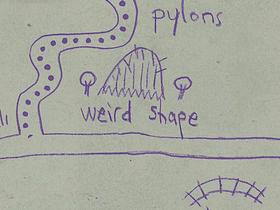 pylons
weird shape